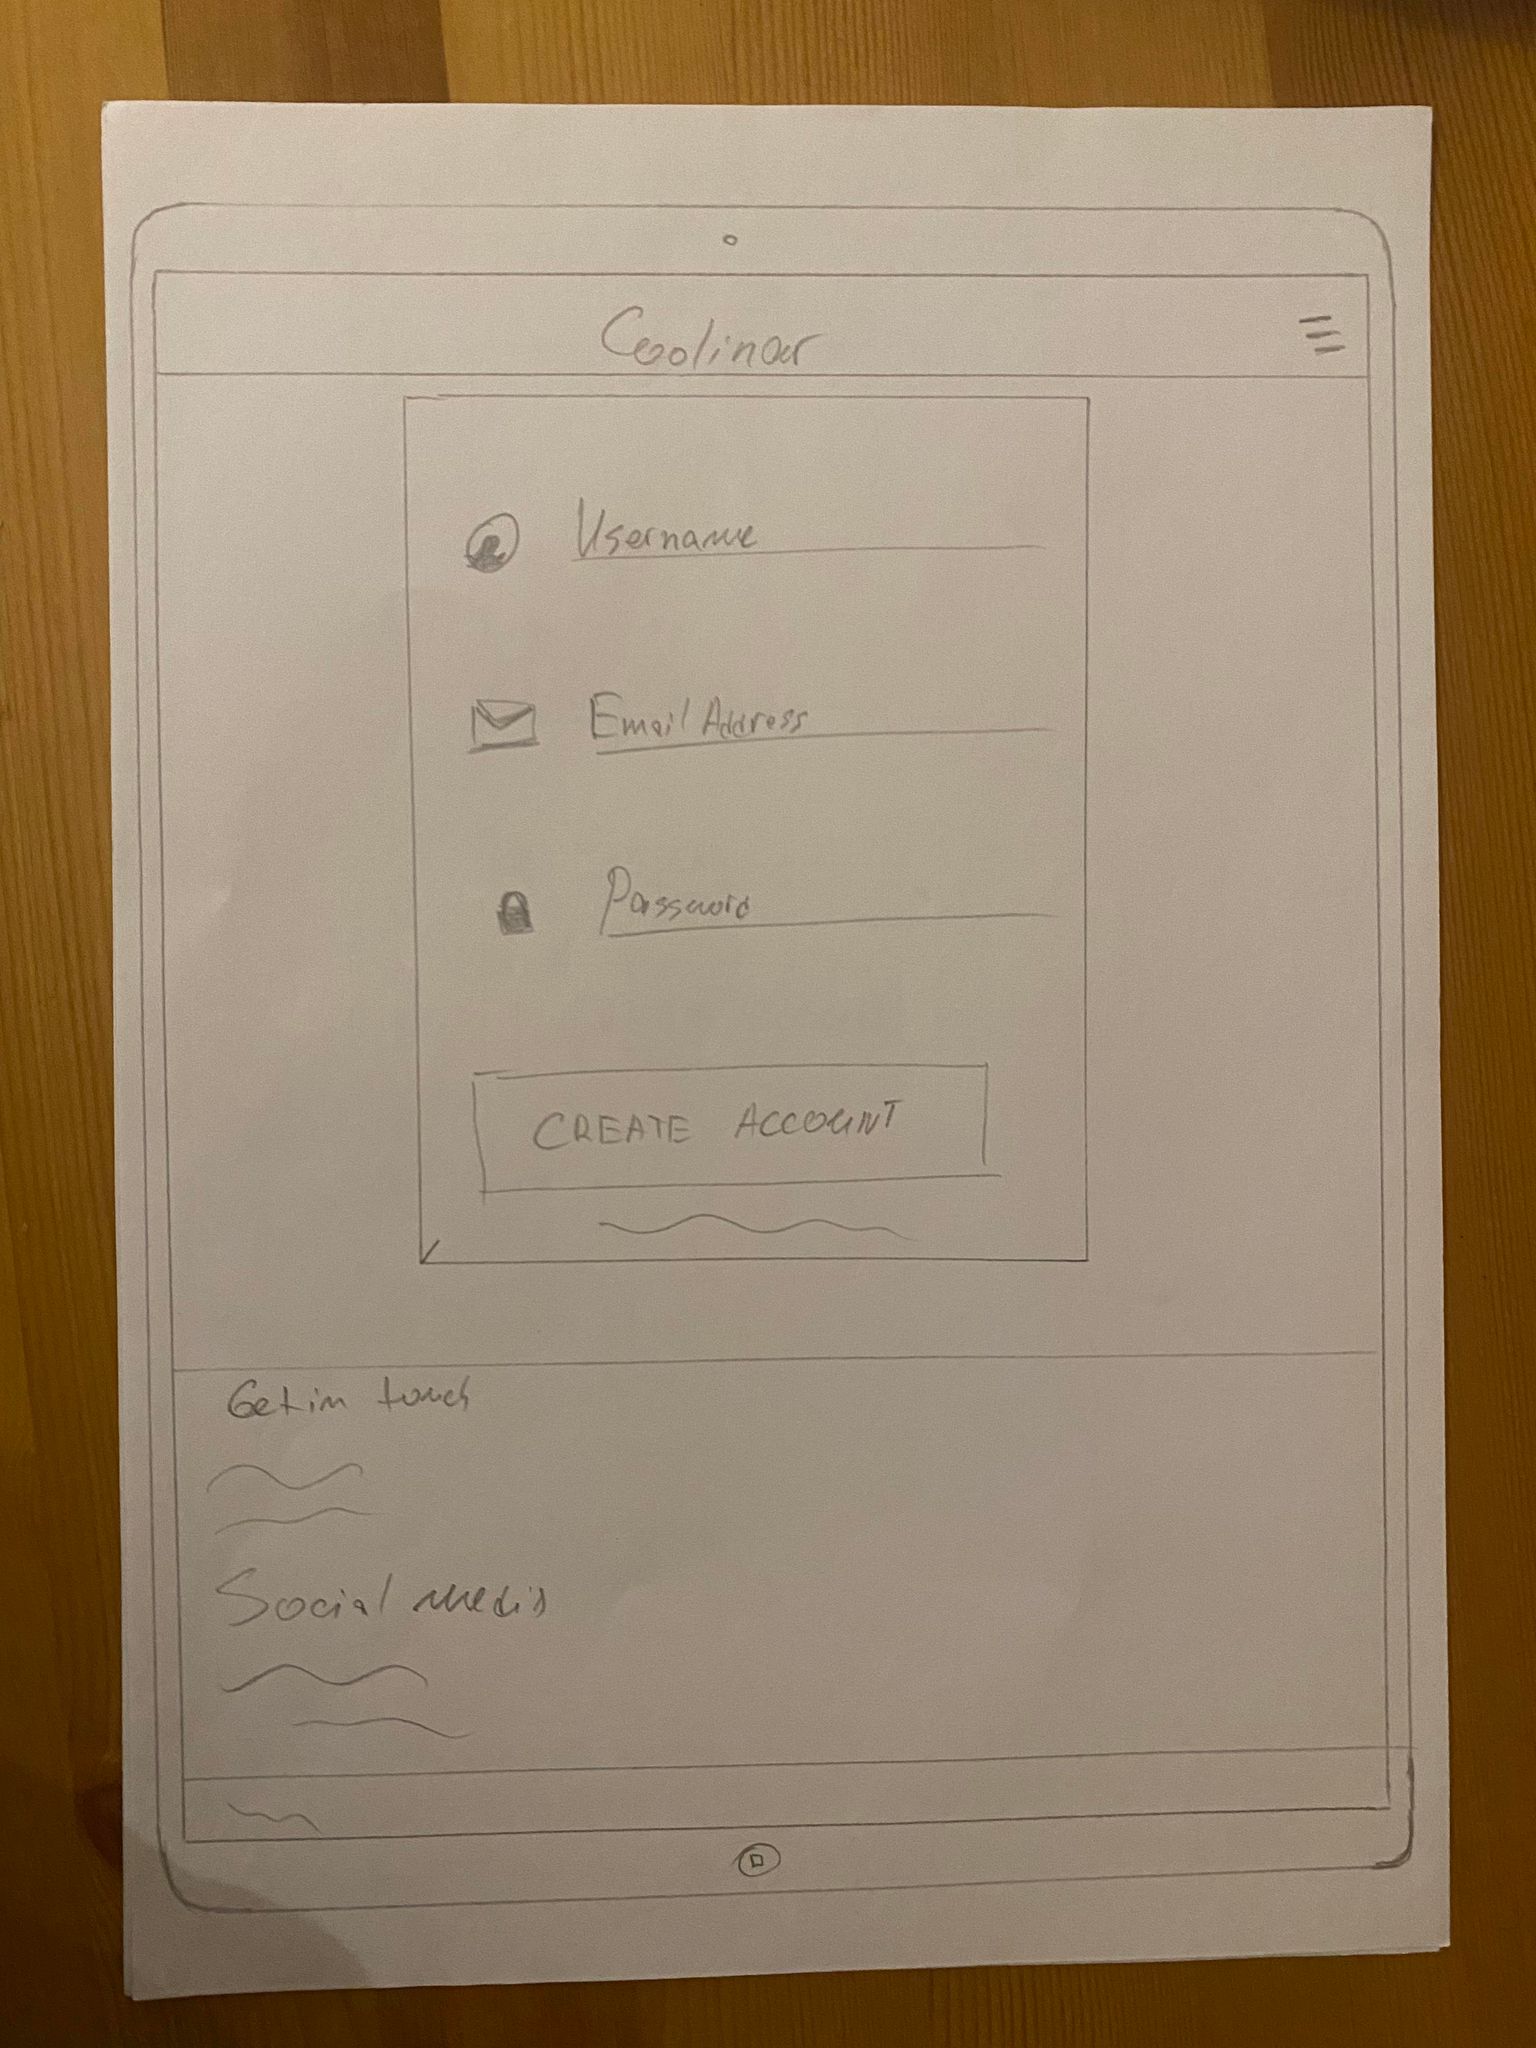 Coolinar
Username
Email Address
Password
CREATE ACCOUNT
Get in touch
Social media